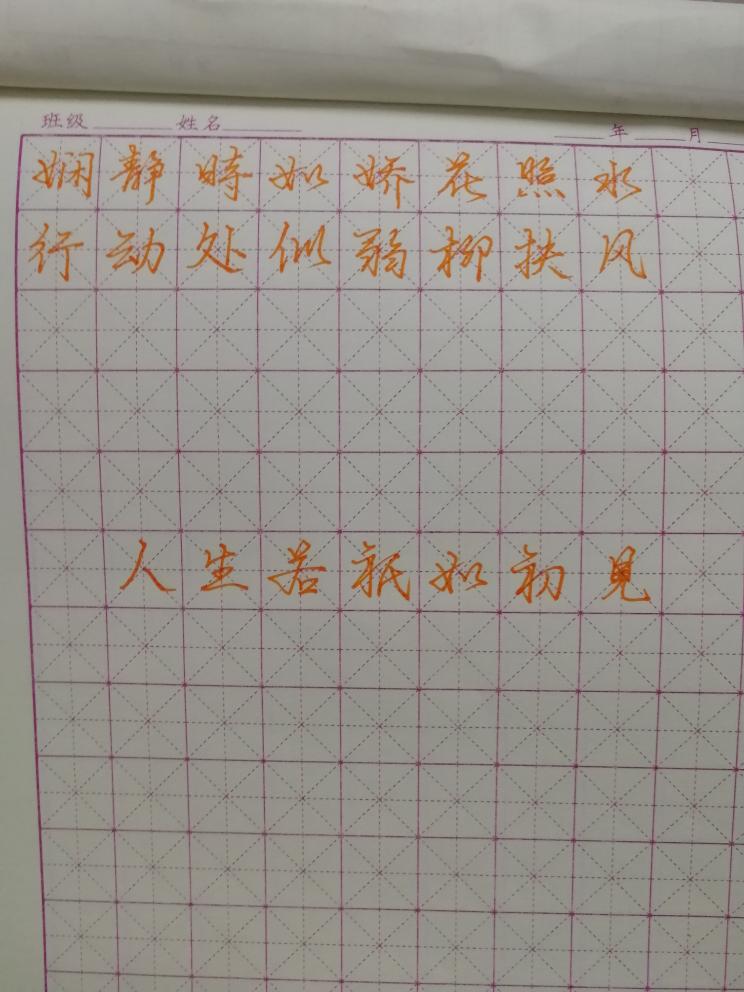 班级 姓名 年 月
娴静時如娇花照水
行动处似弱柳扶风
人生若祇如初見